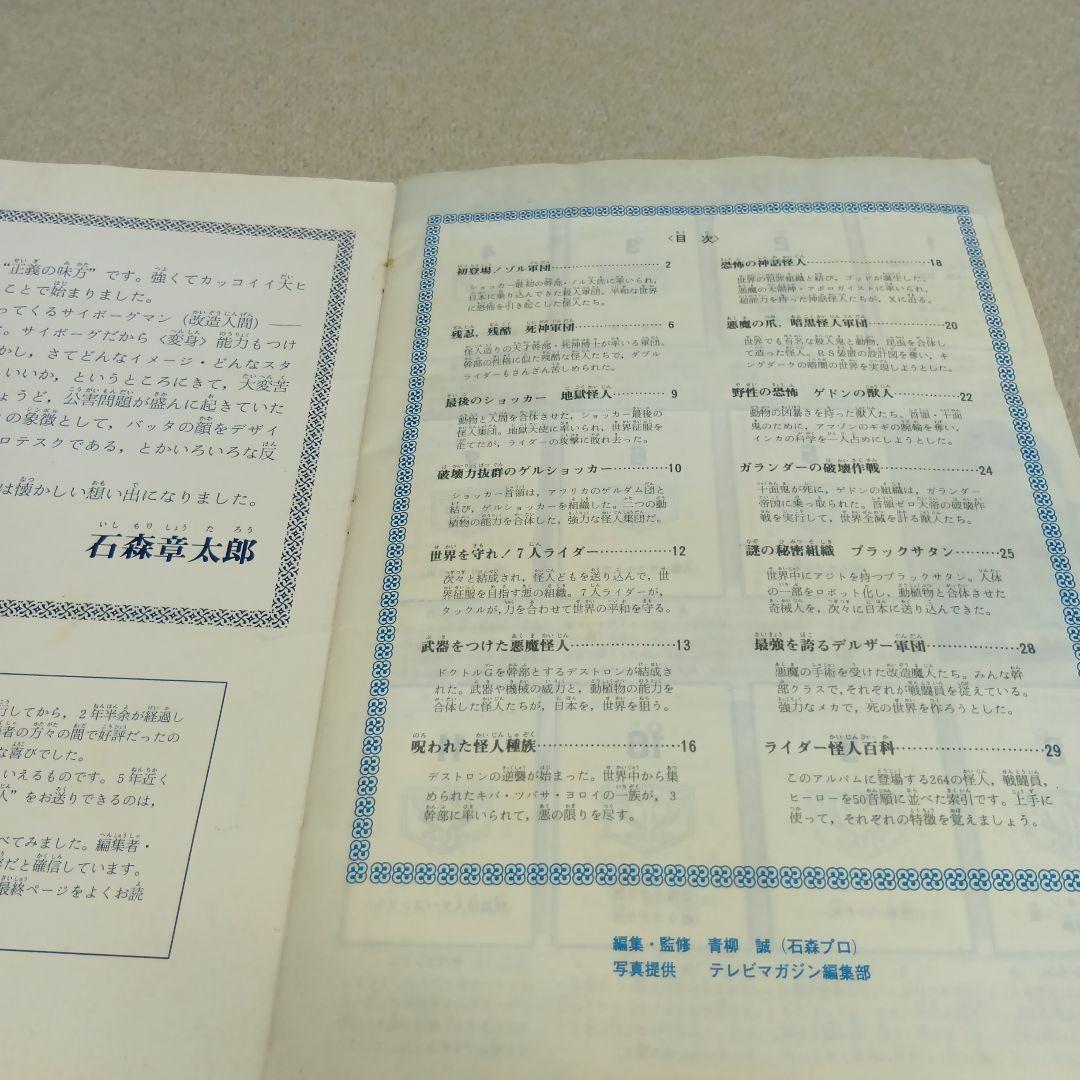 “正義の味方”です。強くてカッコイイ大ヒ
ことで始まりました。
ってくるサイボーグマン(改造人間)――
。サイボーグだから〈変身〉能力もつけ
かし,さてどんなイメージ・どんなスタ
いいか,というところにきて,大変苦
ょうど,公害問題が盛んに起きていた
の象徴として,バッタの顔をデザイ
ロテスクである,とかいろいろな反
は懐かしい想い出になりました。
石森章太郎
行してから,2年半余が経過し
者の方々の間で好評だったの
な喜びでした。
いえるものです。5年近く
人”をお送りできるのは,
べてみました。編集者・
だと確信しています。
最終ページをよくお読
〈目次〉
初登場!ゾル軍団…………2
ショッカー最初の幹部・ゾル大佐に率いられ,
日本に乗り込んできた殺人軍団。平和な世界
に恐怖を引き起こした怪人たち。
残忍,残酷 死神軍団…………6
怪人造りの天才幹部・死神博士が率いる軍団。
幹部の性格に似た残酷な怪人たちで,ダブル
ライダーもさんざん苦しめられた。
最後のショッカー 地獄怪人…………9
動物と人間を合体させた,ショッカー最後の
怪人集団。地獄大使に率いられ,世界征服を
企てたが,ライダーの攻撃に敗れ去った。
破壊力抜群のゲルショッカー…………10
ショッカー首領は,アフリカのゲルダム団と
結び,ゲルショッカーを組織した。二つの動
植物の能力を合体した,強力な怪人集団だ。
世界を守れ!7人ライダー…………12
次々と結成され,怪人どもを送り込んで,世
界征服を目指す悪の組織。7人ライダーが,
タックルが,力を合わせて世界の平和を守る。
武器をつけた悪魔怪人…………13
ドクトルGを幹部とするデストロンが結成さ
れた。武器や機械の威力と,動植物の能力を
合体した怪人たちが,日本を,世界を狙う。
呪われた怪人種族…………16
デストロンの逆襲が始まった。世界中から集
められたキバ・ツバサ・ヨロイの一族が,3
幹部に率いられて,悪の限りを尽す。
恐怖の神話怪人…………18
世界の犯罪組織と結び,ゴッドが誕生した。
悪魔の天才神・アポロガイストに率いられ,
超能力を持った神話怪人たちが,Xに迫る。
悪魔の爪,暗黒怪人軍団…………20
世界でも有名な殺人鬼と動物,昆虫を合体し
て造った怪人。RS装置の設計図を奪い,キ
ングダークの暗闇の世界を実現しようとした。
野性の恐怖 ゲドンの獣人…………22
動物の凶暴さを持った獣人たち。首領・十面
鬼のために,アマゾンのギギの腕輪を奪い,
インカの科学を一人占めにしようとした。
ガランダーの破壊作戦…………24
十面鬼が死に,ゲドンの組織は,ガランダー
帝国に乗っ取られた。首領ゼロ大帝の破壊作
戦を実行して,世界全滅を計る獣人たち。
謎の秘密組織 ブラックサタン…………25
世界中にアジトを持つブラックサタン。人体
の一部をロボット化し,動植物と合体させた
奇械人を,次々に日本に送り込んできた。
最強を誇るデルザー軍団…………28
悪魔の手術を受けた改造魔人たち。みんな幹
部クラスで,それぞれが戦闘員を従えている。
強力なメカで,死の世界を作ろうとした。
ライダー怪人百科…………29
このアルバムに登場する264の怪人,戦闘員,
ヒーローを50音順に並べた索引です。上手に
使って,それぞれの特徴を覚えましょう。
編集・監修 青柳 誠(石森プロ)
写真提供 テレビマガジン編集部